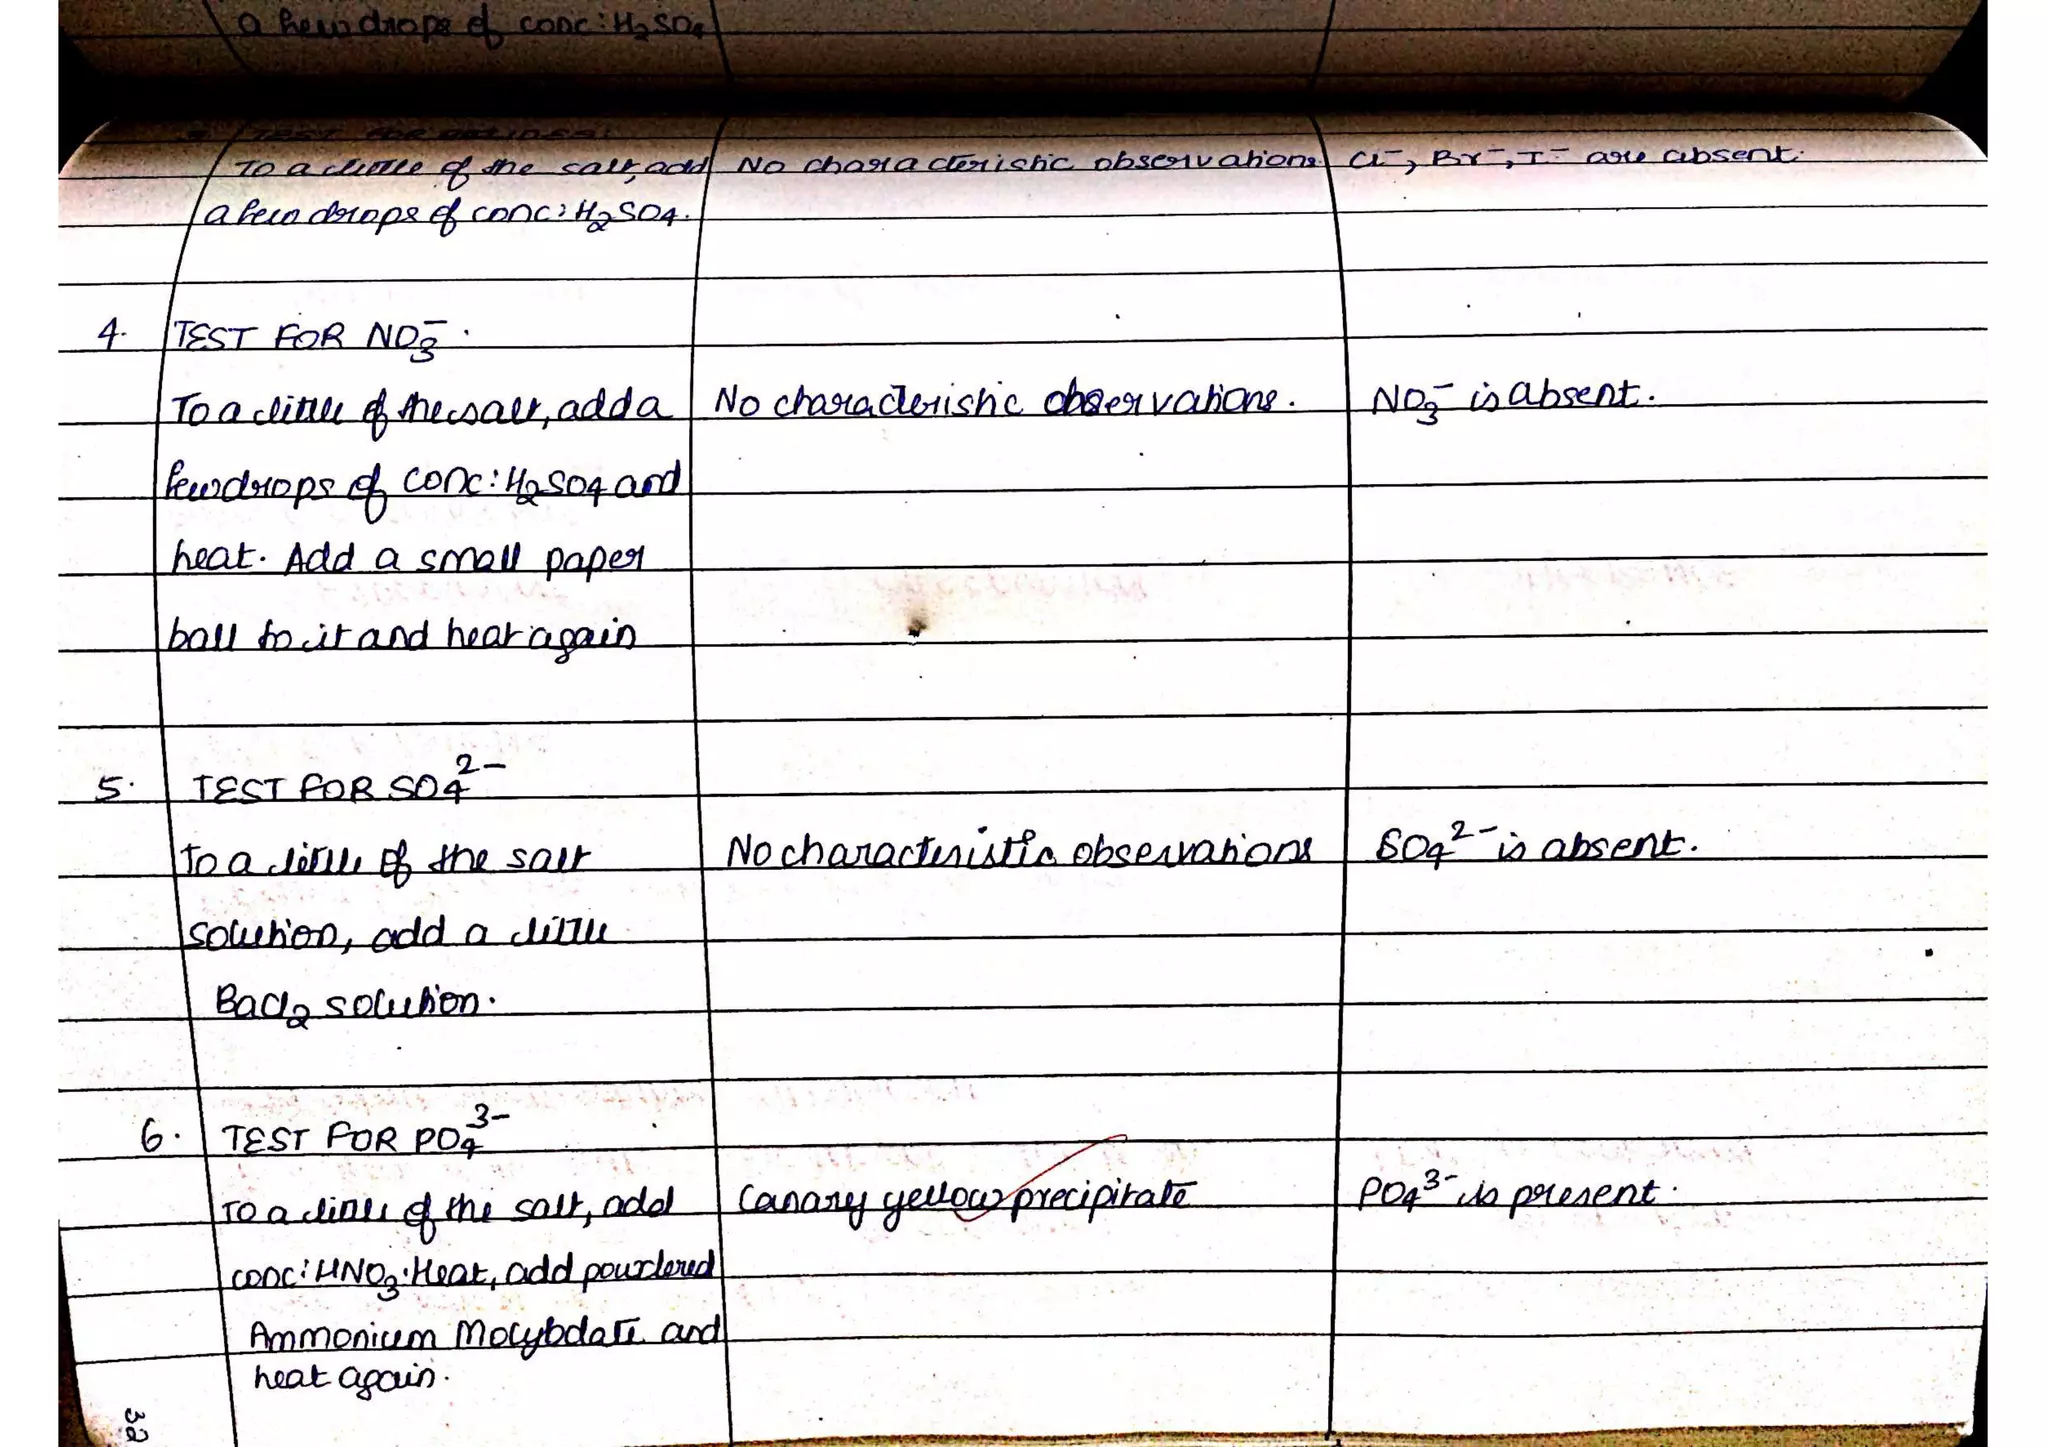 a few drops of conc: H2SO4
3. TEST FOR HALIDES:
To a little of the salt, add No characteristic observations Cl⁻, Br⁻, I⁻ are absent.
a few drops of conc: H2SO4.
4. TEST FOR NO3⁻.
To a little of the salt, add a No characteristic observations. NO3⁻ is absent.
few drops of conc: H2SO4 and
heat. Add a small paper
ball to it and heat again
5. TEST FOR SO4²⁻
To a little of the salt No characteristic observations SO4²⁻ is absent.
solution, add a little
BaCl2 solution.
6. TEST FOR PO4³⁻
To a little of the salt, add Canary yellow precipitate PO4³⁻ is present.
conc: HNO3. Heat, add powdered
Ammonium Molybdate and
heat again.
32